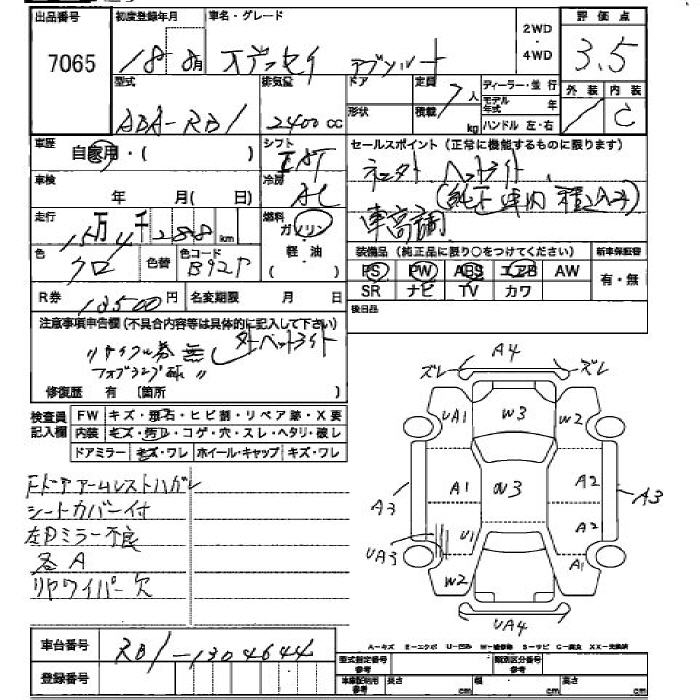 出品番号 初度登録年月 車名・グレード 2WD ・ 4WD 評価点
7065 18 8月 オデッセイ アブソルート 3.5
型式 排気量 ドア 定員 7人 ディーラー・並行 外装 内装
ABA-RB1 2400cc 形状 積載 kg モデル年式 年 C
ハンドル 左・右
車歴 自家用・( ) シフト セールスポイント(正常に機能するものに限ります)
車検 年 月(日) 冷房 AC
(純正車内積込み)
車高調
走行 15万4千288km 燃料 ガソリン 軽・油
色 クロ 色替 色コード B92P
装備品(純正品に限り○をつけてください) 新車保証書
PS PW ABS エアB AW 有・無
SR ナビ TV カワ
R券 13500円 名変期限 月 日
後日品
注意事項申告欄(不具合内容等は具体的に記入して下さい)
"リサイクル券 無し
フォグランプ
修復歴 有 [箇所 ]
検査員記入欄 FW キズ・飛石・ヒビ割・リペア跡・X要
内装 キズ・汚レ・コゲ・穴・スレ・ヘタリ・破レ
ドアミラー キズ・ワレ ホイール・キャップ キズ・ワレ
Fドアアームレストハガレ
シートカバー付
左Dミラー不良
各A
リヤワイパー欠
ズレ A4 ズレ
UA1 W3 W2
A3 A1 W3 A2 A3
UA3 U1 A2
W2 A1
UA4
車台番号 RB1-1304644
登録番号
A-キズ E-エクボ U-凹ミ W-補修跡 S-サビ C-腐食 XX-交換済
型式指定番号 参考 類別区分番号 参考
車体証明用 参考 長さ cm 幅 cm 高さ cm